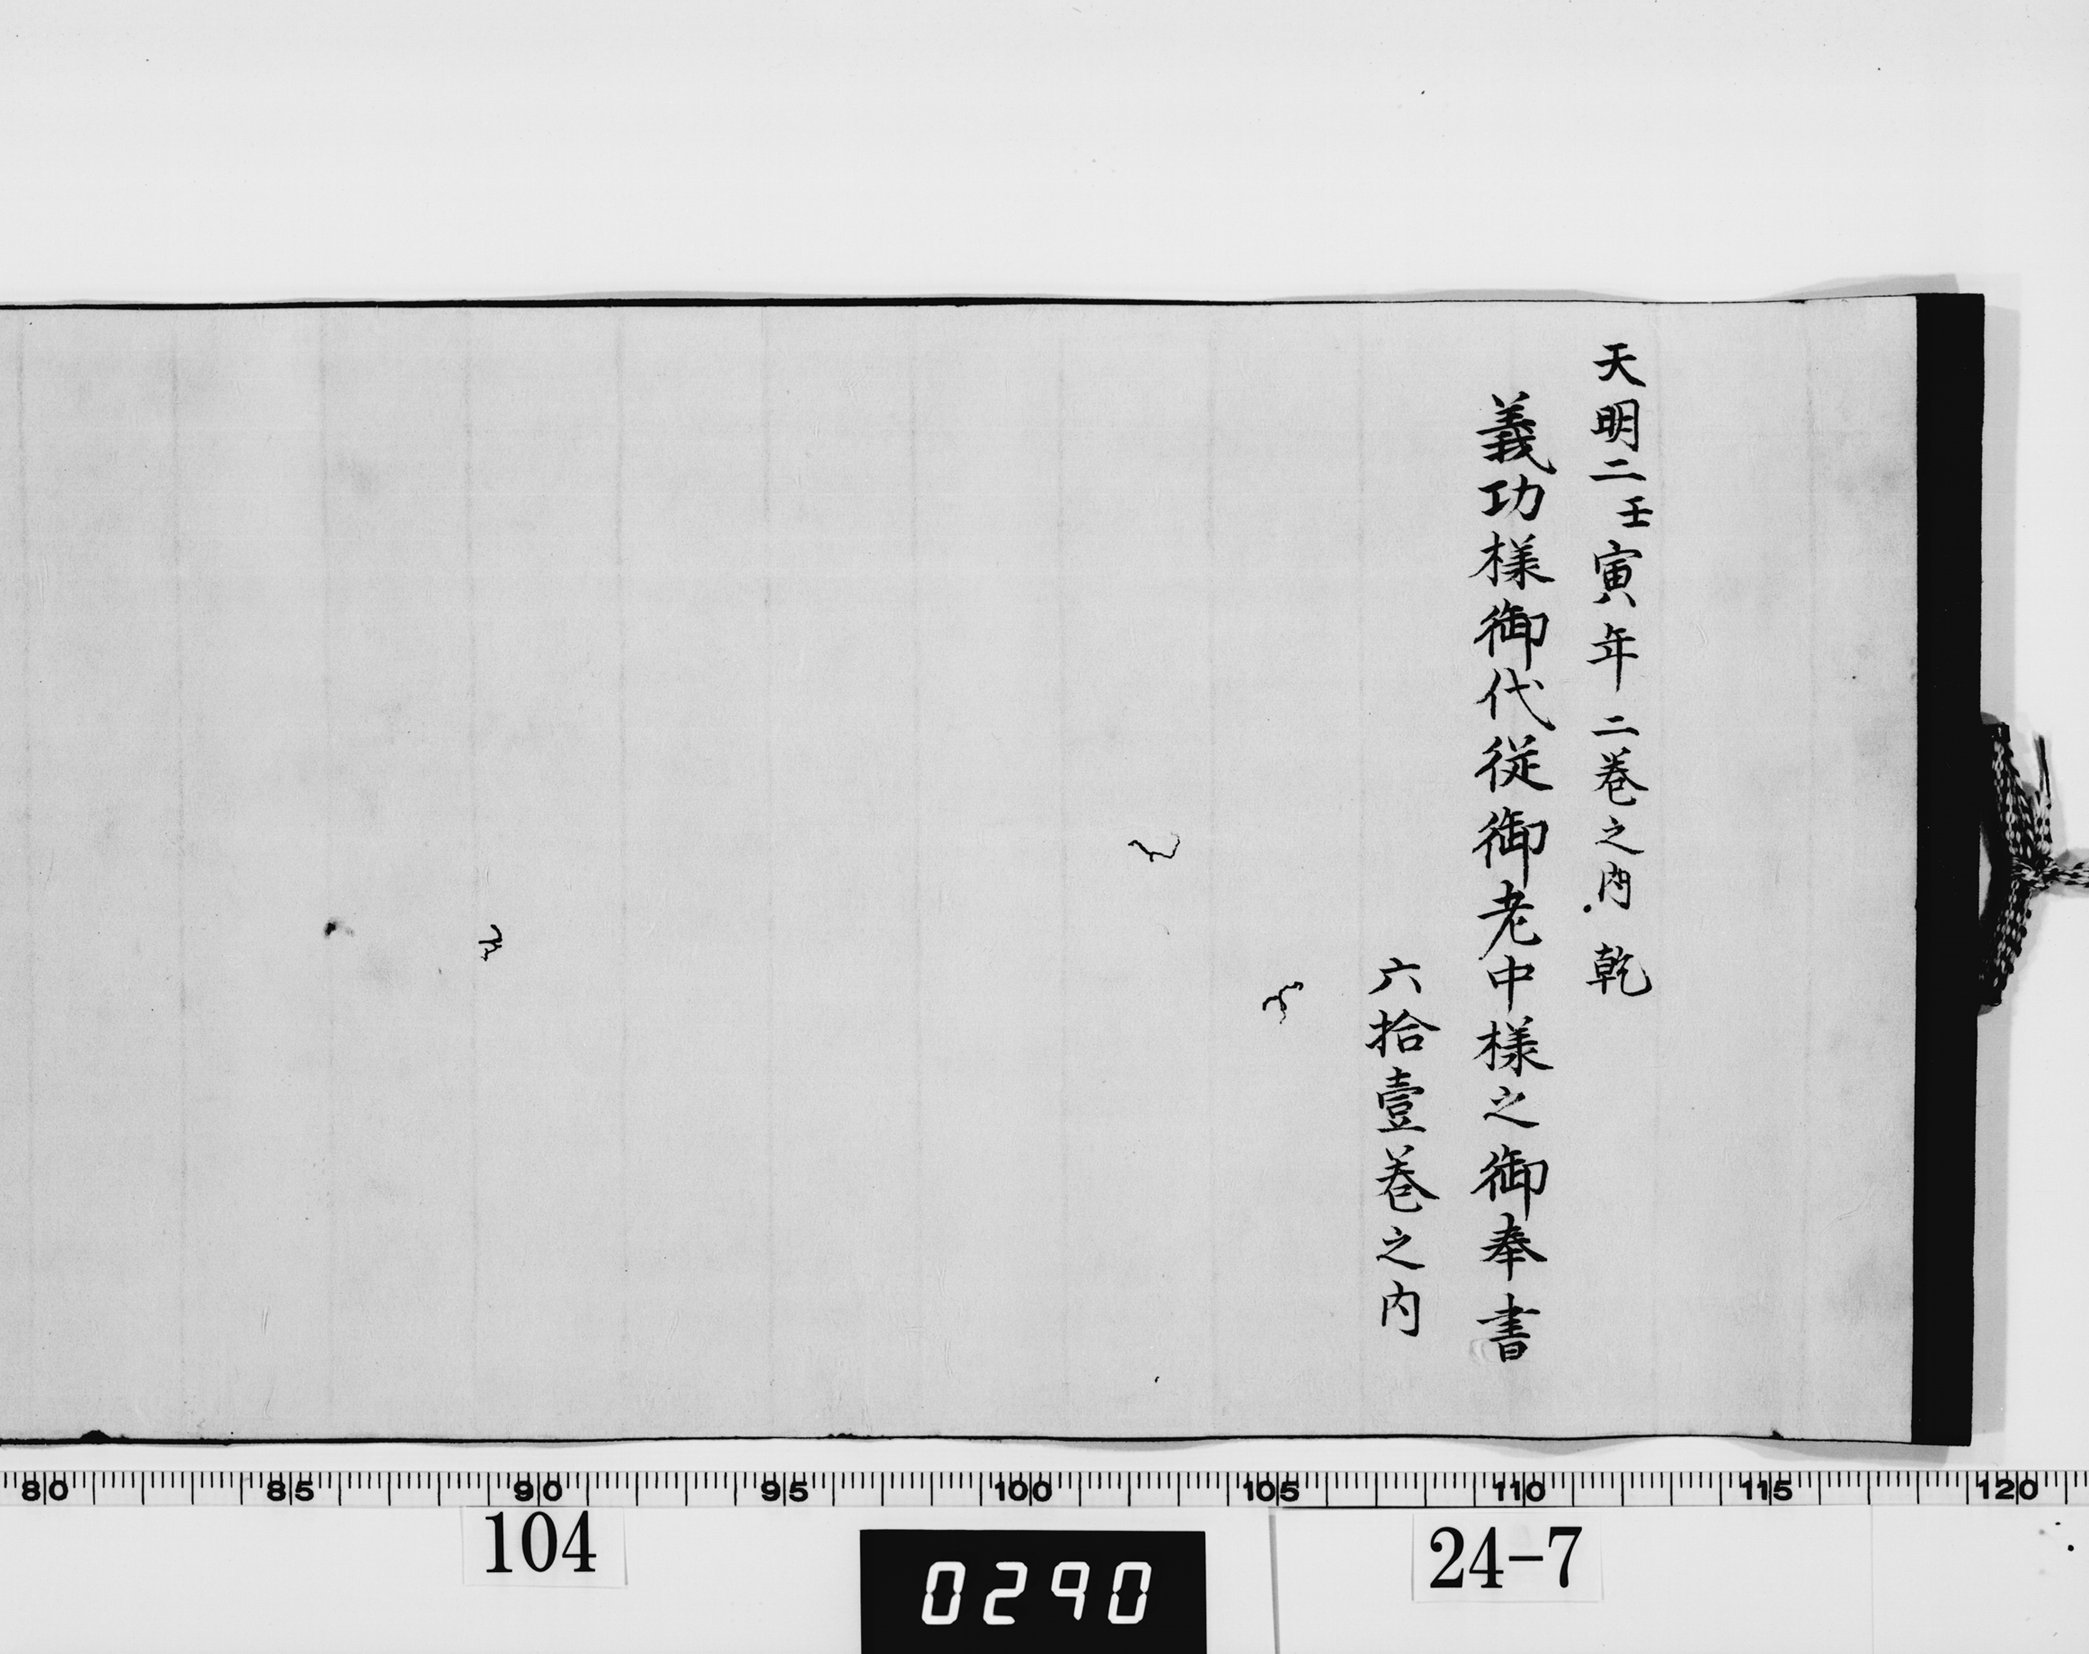 天明二壬寅年 二巻之内 乾
義功様御代従御老中様之御奉書
六拾壹巻之内
80 85 90 95 100 105 110 115 120
104
0290
24-7